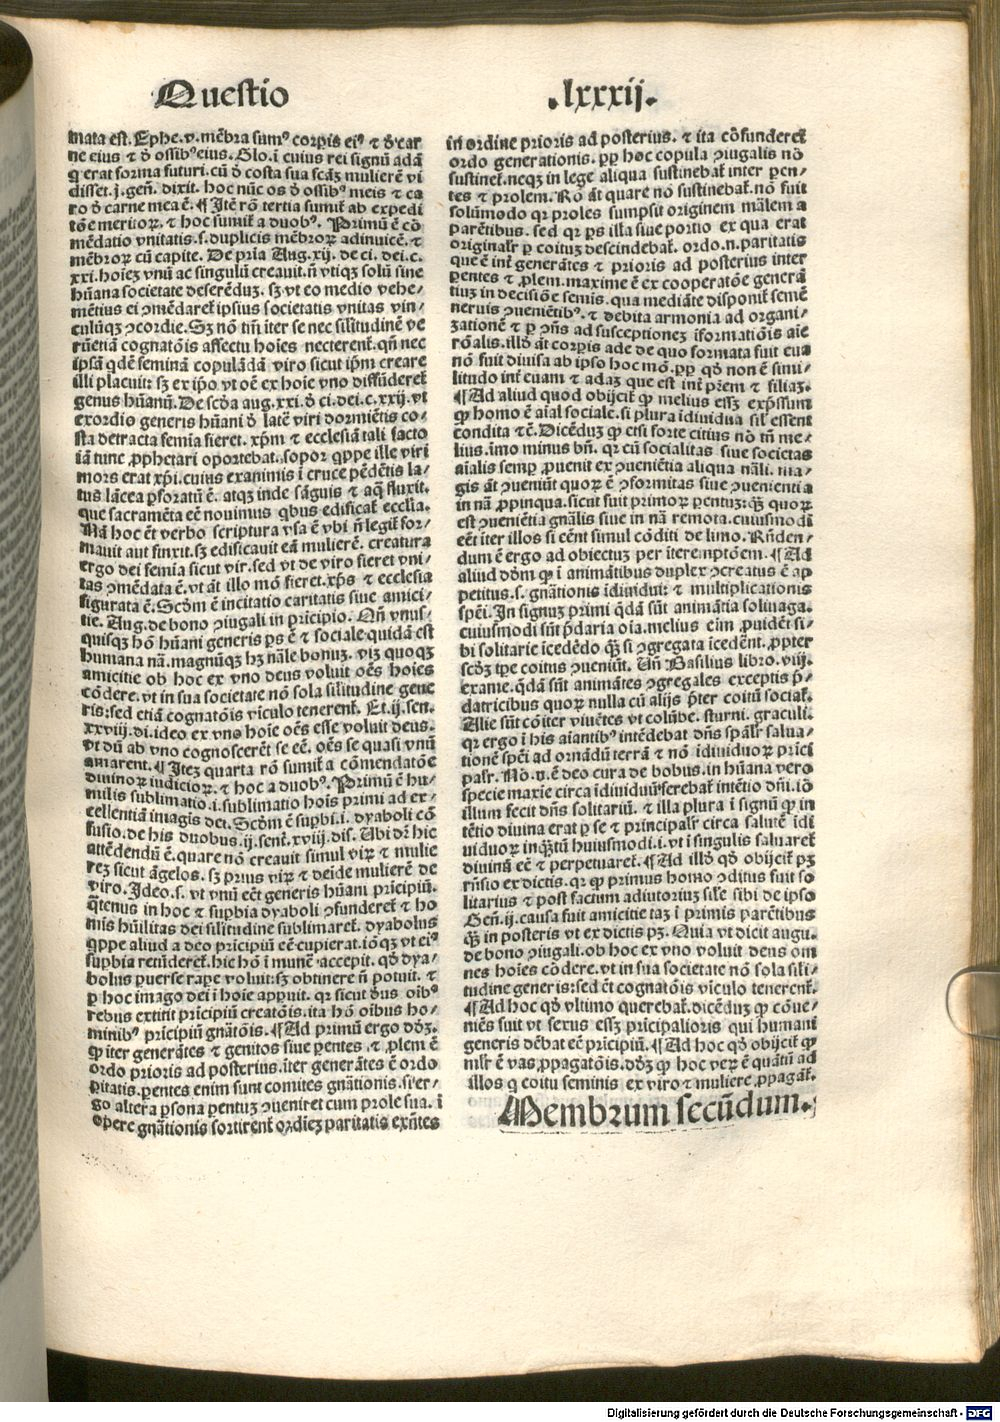 Questio .lxxxij.
mata est. Ephe.v. mēbra sumꝰ corpis eiꝰ ⁊ ð car
ne eius ⁊ ð ossibꝰ eius. Glo. ī cuius rei signū adā
q erat forma futuri. cū ð costa sua scāꝫ mulierē vi
disset. j. geñ. dixit. hoc nūc os ð ossibꝰ meis ⁊ ca
ro ð carne mea ē. ¶ Itē rō tertia sumit̄ ab expedi
tōe meritoꝝ. ⁊ hoc sumit̄ a duobꝰ. Primū ē cō
mēdatio vnitatis. s. duplicis mēbroꝝ adinuicē. ⁊
mēbroꝝ cū capite. De pria Aug. xij. de ci. dei. c.
xxi. hoieꝫ vnū ac singulū creauit. ñ vtiqꝫ solū sine
hūana societate deserēduꝫ. sꝫ vt eo medio vehe⸗
mētius ei ꝯmēdaret̄ ipsius societatis vnitas vin⸗
culūqꝫ ꝯcordie. Sꝫ nō tm̄ iter se nec silitudinē ve
rūetiā cognatōis affectu hoies necterent̄. qñ nec
ipsā qdē feminā copulādā viro sicut ipm̄ creare
illi placuit: sꝫ ex ip̄o vt oē ex hoie vno diffūderet̄
genus hūanū. De scða aug. xxi. ð ci. dei. c. xxij. vt
exordio generis hūani ð latē viri dormiētis co⸗
sta detracta femia fieret. xp̄m ⁊ ecclesiā tali facto
iā tunc ꝓphetari oportebat. sopor qppe ille viri
mors erat xp̄i. cuius exanimis ī cruce pēdētis la⸗
tus lācea pforatū ē. atqꝫ inde sāguis ⁊ aq̄ fluxit.
que sacramēta eē nouimus qbus edificat̄ ecclīa.
Nā hoc ēt verbo scriptura vsa ē vbi ñ legit̄ for⸗
mauit aut finxit. sꝫ edificauit eā mulierē. creatura
ergo dei femia sicut vir. sed vt de viro fieret vni⸗
tas ꝯmēdata ē. vt āt illo mō fieret. xp̄s ⁊ ecclesia
figurata ē. Scðm ē incitatio caritatis siue amici⸗
tie. Aug. de bono ꝯiugali in pricipio. Qm̄ vnus⸗
quisqꝫ hō hūani generis ps ē ⁊ sociale quidā est
humana nā. magnūqꝫ hꝫ nāle bonuꝫ. viꝫ quoqꝫ
amicitie ob hoc ex vno deus voluit oēs hoies
cōdere. vt in sua societate nō sola silitudine gene
ris: sed etiā cognatōis vīculo tenerent̄. Et. ij. sen.
xxviij. di. ideo ex vno hoie oēs esse voluit deus.
vt dū ab vno cognoscerēt se eē. oēs se quasi vnū
amarent. ¶ Iteꝫ quarta rō sumit̄ a cōmendatōe
diuinoꝝ iudicioꝝ. ⁊ hoc a duobꝰ. Primū ē hu⸗
milis sublimatio. i. sublimatio hois primi ad ex⸗
cellentiā imagis dei. Scðm ē supbi. i. dyaboli cō
fusio. de his duobus. ij. sent̄. xviij. dis. Ubi dr̄ hic
attēdendū ē. quare nō creauit simul virꝝ ⁊ mulie
reꝫ sicut āgelos. sꝫ prius virꝝ ⁊ deide mulierē de
viro. Ideo. s. vt vnū eēt generis hūani pricipiū.
q̄tenus in hoc ⁊ supbia dyaboli ꝯfunderet̄ ⁊ ho
mis hūilitas dei silitudine sublimaret̄. dyabolus
qppe aliud a deo pricipiū eē cupierat. iōqꝫ vt eiꝰ
supbia retūderet̄. hic hō ī munē accepit. qð dya⸗
bolus puerse rape voluit: sꝫ obtinere ñ potuit. ⁊
p hoc imago dei ī hoie appuit. qr sicut ðus oībꝰ
rebus extitit pricipiū creatōis. ita hō oibus ho⸗
minibꝰ pricipiū gnātōis. ¶ Ad primū ergo ðōꝫ.
ꝙ iter generātes ⁊ genitos siue pentes. ⁊ ꝓlem ē
ordo prioris ad posterius. iter generātes ē ordo
pitatis. pentes enim sunt comites gnātionis. si er⸗
go altera psona pentuꝫ ꝯueniret cum prole sua. ī
opere gnātionis sortirent̄ ordieꝫ paritatis exn̄tes
in ordine prioris ad posterius. ⁊ ita cōfunderet̄
ordo generationis. pp hoc copula ꝯiugalis nō
sustinet̄. neqꝫ in lege aliqua sustinebat̄ inter pen⸗
tes ⁊ prolem. Rō āt quare nō sustinebat̄. nō fuit
solūmodo qr proles sumpsit originem mālem a
parētibus. sed qr ps illa siue portio ex qua erat
originalr̄ p coituꝫ descindebat̄. ordo. n. paritatis
que ē int̄ generātes ⁊ prioris ad posterius inter
pentes ⁊ ꝓlem. maxime ē ex cooperatōe generā
tiuꝫ in decisiōe semis. qua mediāte disponit̄ semē
neruis ꝯueniētibꝰ. ⁊ debita armonia ad organi⸗
zationē ⁊ p ꝯñs ad susceptioneꝫ iformatiōis aīe
rōalis. illð āt corpis ade de quo formata fuit eua
nō fuit diuisa ab ipso hoc mō. pp qð non ē simi⸗
litudo int̄ euam ⁊ adaꝫ que est int̄ prēm ⁊ filiaꝫ.
¶ Ad aliud quod obijcit̄ ꝙ melius esset exp̄ssum
ꝙ homo ē aīal sociale. si plura idiuidua sil̄ essent
condita ⁊ č. Dicēduꝫ ꝙ etsi forte citius nō tñ me⸗
lius. imo minus bñ. qr cū socialitas siue societas
aīalis semp ꝓuenit ex ꝯueniētia aliqua nāli. ma⸗
gis āt ꝯueniūt quoꝝ ē ꝯformitas siue ꝯuenientia
in nā ꝓpinqua. sicut fuit primoꝝ pentuꝫ: q̄ꝫ quoꝝ
est ꝯueniētia gnālis siue in nā remota. cuiusmodi
eēt iter illos si eēnt simul cōditi de limo. Rn̄den⸗
dum ē ergo ad obiectuꝫ per iteremptōem. ¶ Ad
aliud dðm ꝙ ī animātibus duplex ꝯcreatus ē ap
petitus. s. gnātionis idiuidui: ⁊ multiplicationis
spēi. In signuꝫ primi qdā sūt animātia soliuaga.
cuiusmodi sūt p̄daria oīa. melius eim ꝓuidēt si⸗
bi solitarie icedēdo q̄ꝫ si ꝯgregata icedēnt. ꝓpter
scðꝫ tp̄e coitus ꝯueniūt. Uñ Basilius libro. viij.
exame. qdā sūt animātes ꝯgregales exceptis p̄⸗
datricibus quoꝝ nulla cū alijs p̄ter coitū sociat̄.
Alie sūt cōiter viuētes vt colūbe. sturni. graculi.
qr ergo ī his aīantibꝰ intēdebat dñs spālr̄ salua⸗
tionē spēi ad ornādū terrā ⁊ nō idiuiduoꝝ prici
palr̄. Nō. v. ē deo cura de bobus. in hūana vero
specie maxie circa idiuiduū ferebat̄ intētio dñi. iō
illum fecit dñs solitariū. ⁊ illa plura ī signū ꝙ in
tētio diuina erat p se ⁊ principalr̄ circa salutē idi
uiduoꝝ inq̄tū huiusmodi. i. vt ī singulis saluaret̄
diuinū eē ⁊ perpetuaret̄. ¶ Ad illð qð obijcit̄ pꝫ
rñsio ex dictis. qr ꝙ primus homo ꝯditus fuit so
litarius ⁊ post factum adiutoriuꝫ sile sibi de ipso
Geñ. ij. causa fuit amicitie taꝫ ī primis parētibus
q̄ꝫ in posteris vt ex dictis pꝫ. Quia vt dicit augu.
de bono ꝯiugali. ob hoc ex vno voluit deus om
nes hoies cōdere. vt in sua societate nō sola sili⸗
tudine generis: sed ēt cognatōis vīculo tenerent̄.
¶ Ad hoc qð vltimo querebat̄. dicēduꝫ ꝙ cōue⸗
niēs fuit vt sexus esset pricipalioris qui humani
generis dēbat eē pricipiū. ¶ Ad hoc qð obijcit̄ ꝙ
mlr̄ ē vas ꝓpagatōis. dðꝫ ꝙ hoc verꝝ ē quātū ad
illos q coitu seminis ex viro ⁊ muliere ꝓpagāt̄.
Membrum secūdum.
Digitalisierung gefördert durch die Deutsche Forschungsgemeinschaft - DFG